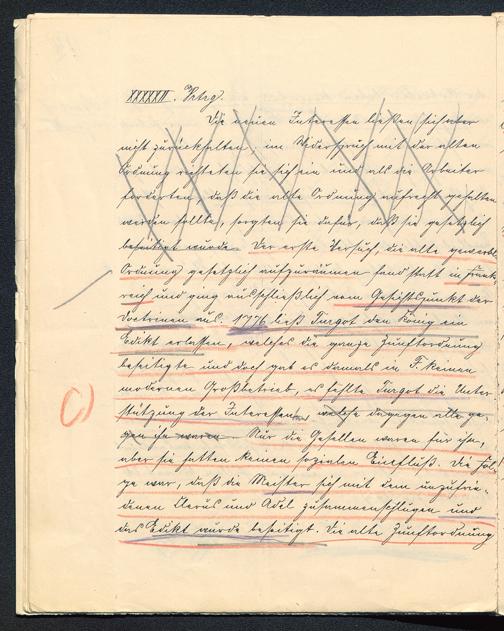 XXXXXII. Vrtrg.
Die neuen Interessen ließen sich aber
nicht zurückhalten, im Widerspruch mit der alten
Ordnung richteten sie sich ein und als die Arbeiter
forderten, daß die alte Ordnung aufrecht gehalten
werden sollte, sorgten sie dafür, daß sie gesetzlich
beseitigt wurde. Der erste Versuch, die alte gewerbl.
Ordnung gesetzlich aufzuräumen fand statt in Frank-
reich und ging ausschließlich vom Gesichtspunkt der
Doctrinen aus. 1776 ließ Turgot den König ein
Edikt erlassen, welches die ganze Zunftordnung
beseitigte und doch gab es damals in F. keinen
modernen Großbetrieb, es fehlte Turgot die Unter-
stützung der Interessen, welche dagegen alle ge-
gen ihn waren. Nur die Gesellen waren für ihn,
aber sie hatten keinen sozialen Einfluß. Die Fol-
ge war, daß die Meister sich mit dem unzufrie-
denen Clerus und Adel zusammenschlugen und
das Edikt wurde beseitigt. Die alte Zunftordnung
C)